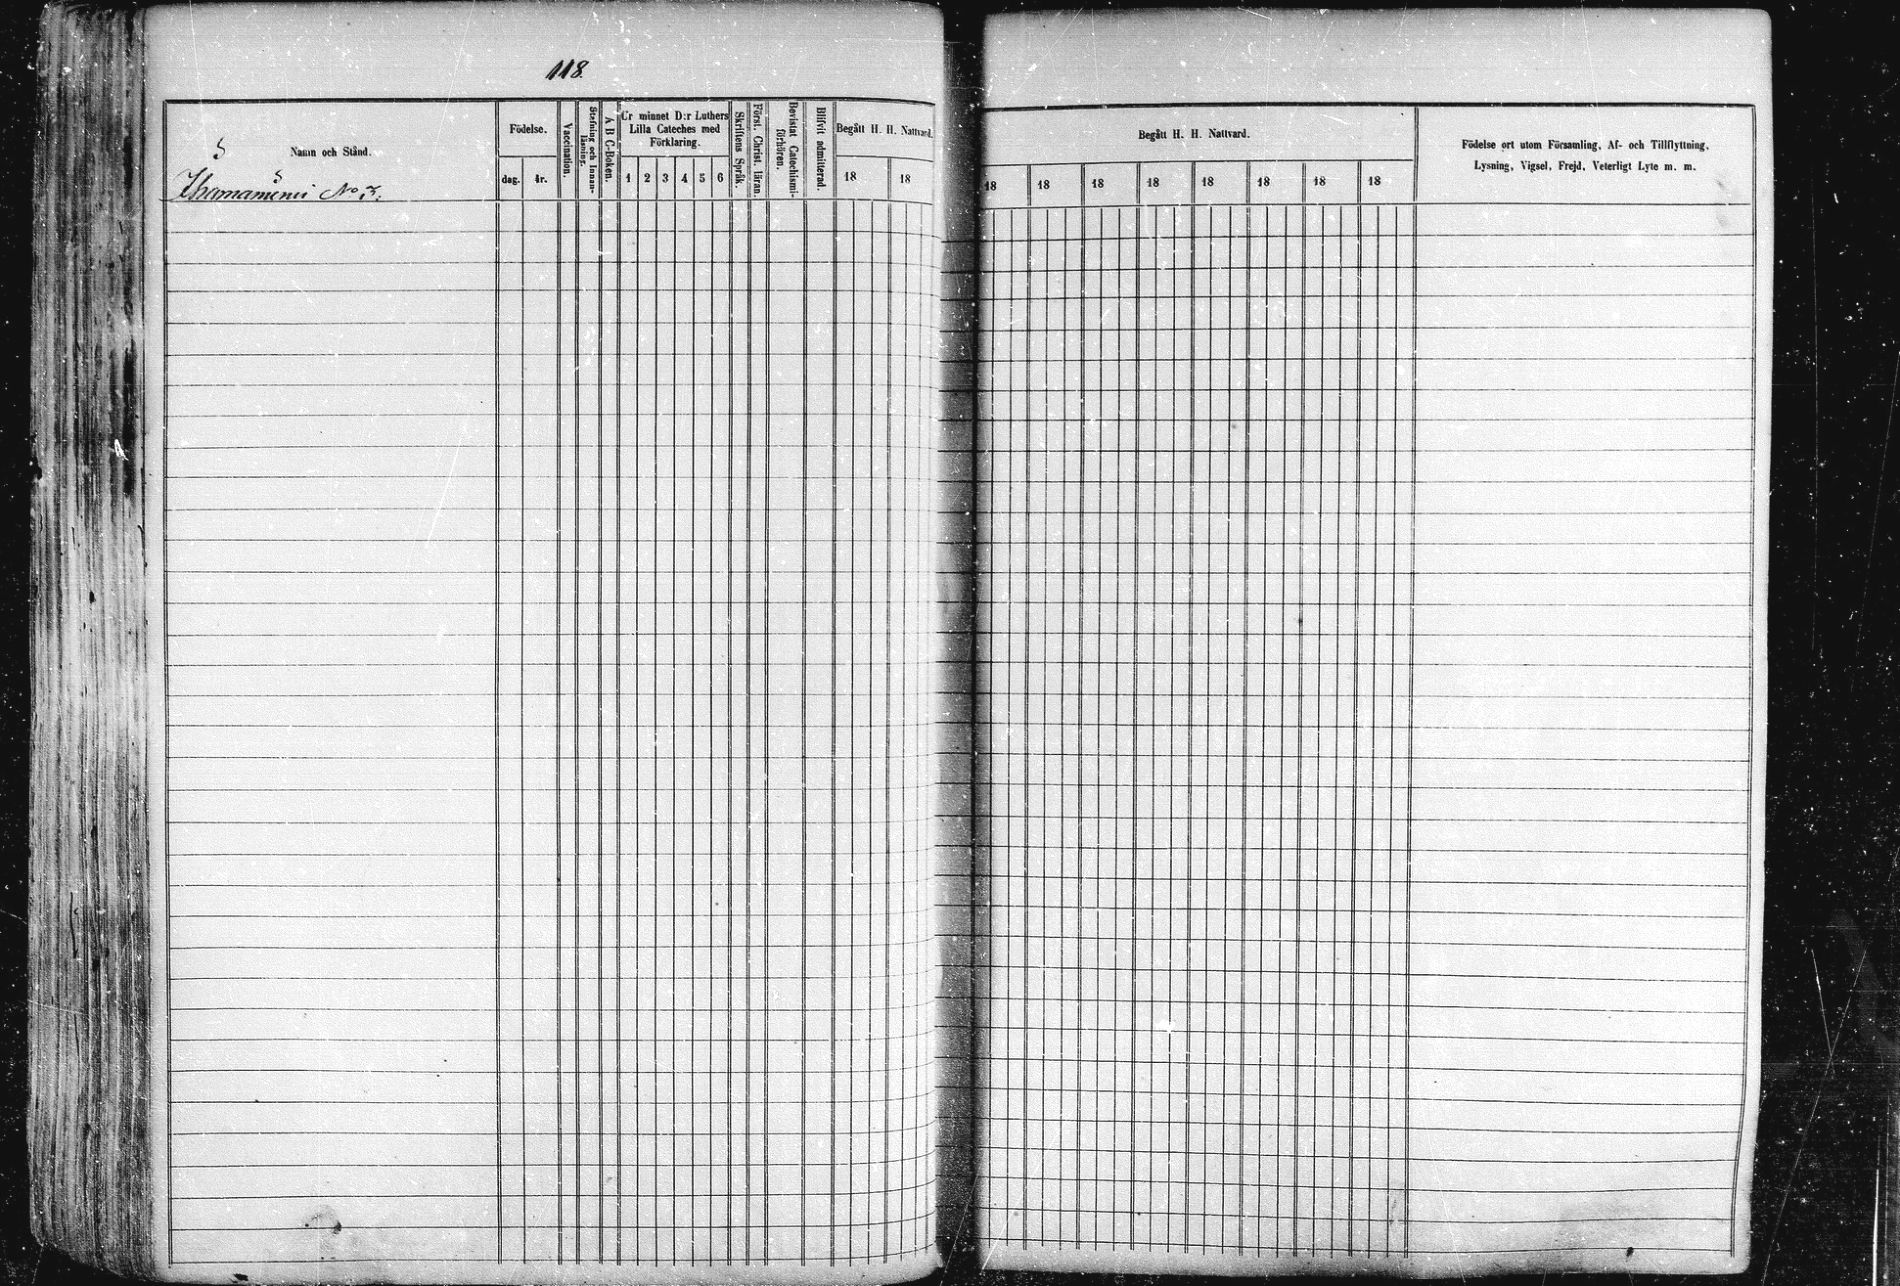 118.
Namn och Stånd.
Födelse.
dag. år.
Vaccination.
Stafning och Innan-
läsning.
A B C-Boken.
Ur minnet D:r Luthers
Lilla Cateches med
Förklaring.
1 2 3 4 5 6
Skriftens Språk.
Först. Christ. läran.
Bevistat Catechismi-
förhören.
Blifvit admitterad.
Begått H. H. Nattvard.
18 18
Begått H. H. Nattvard.
18 18 18 18 18 18 18 18
Födelse ort utom Församling, Af- och Tillflyttning,
Lysning, Vigsel, Frejd, Veterligt Lyte m. m.
No 3.